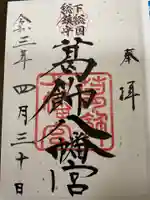 奉拝
下総国
総鎮守
葛飾八幡宮
令和三年四月三十日